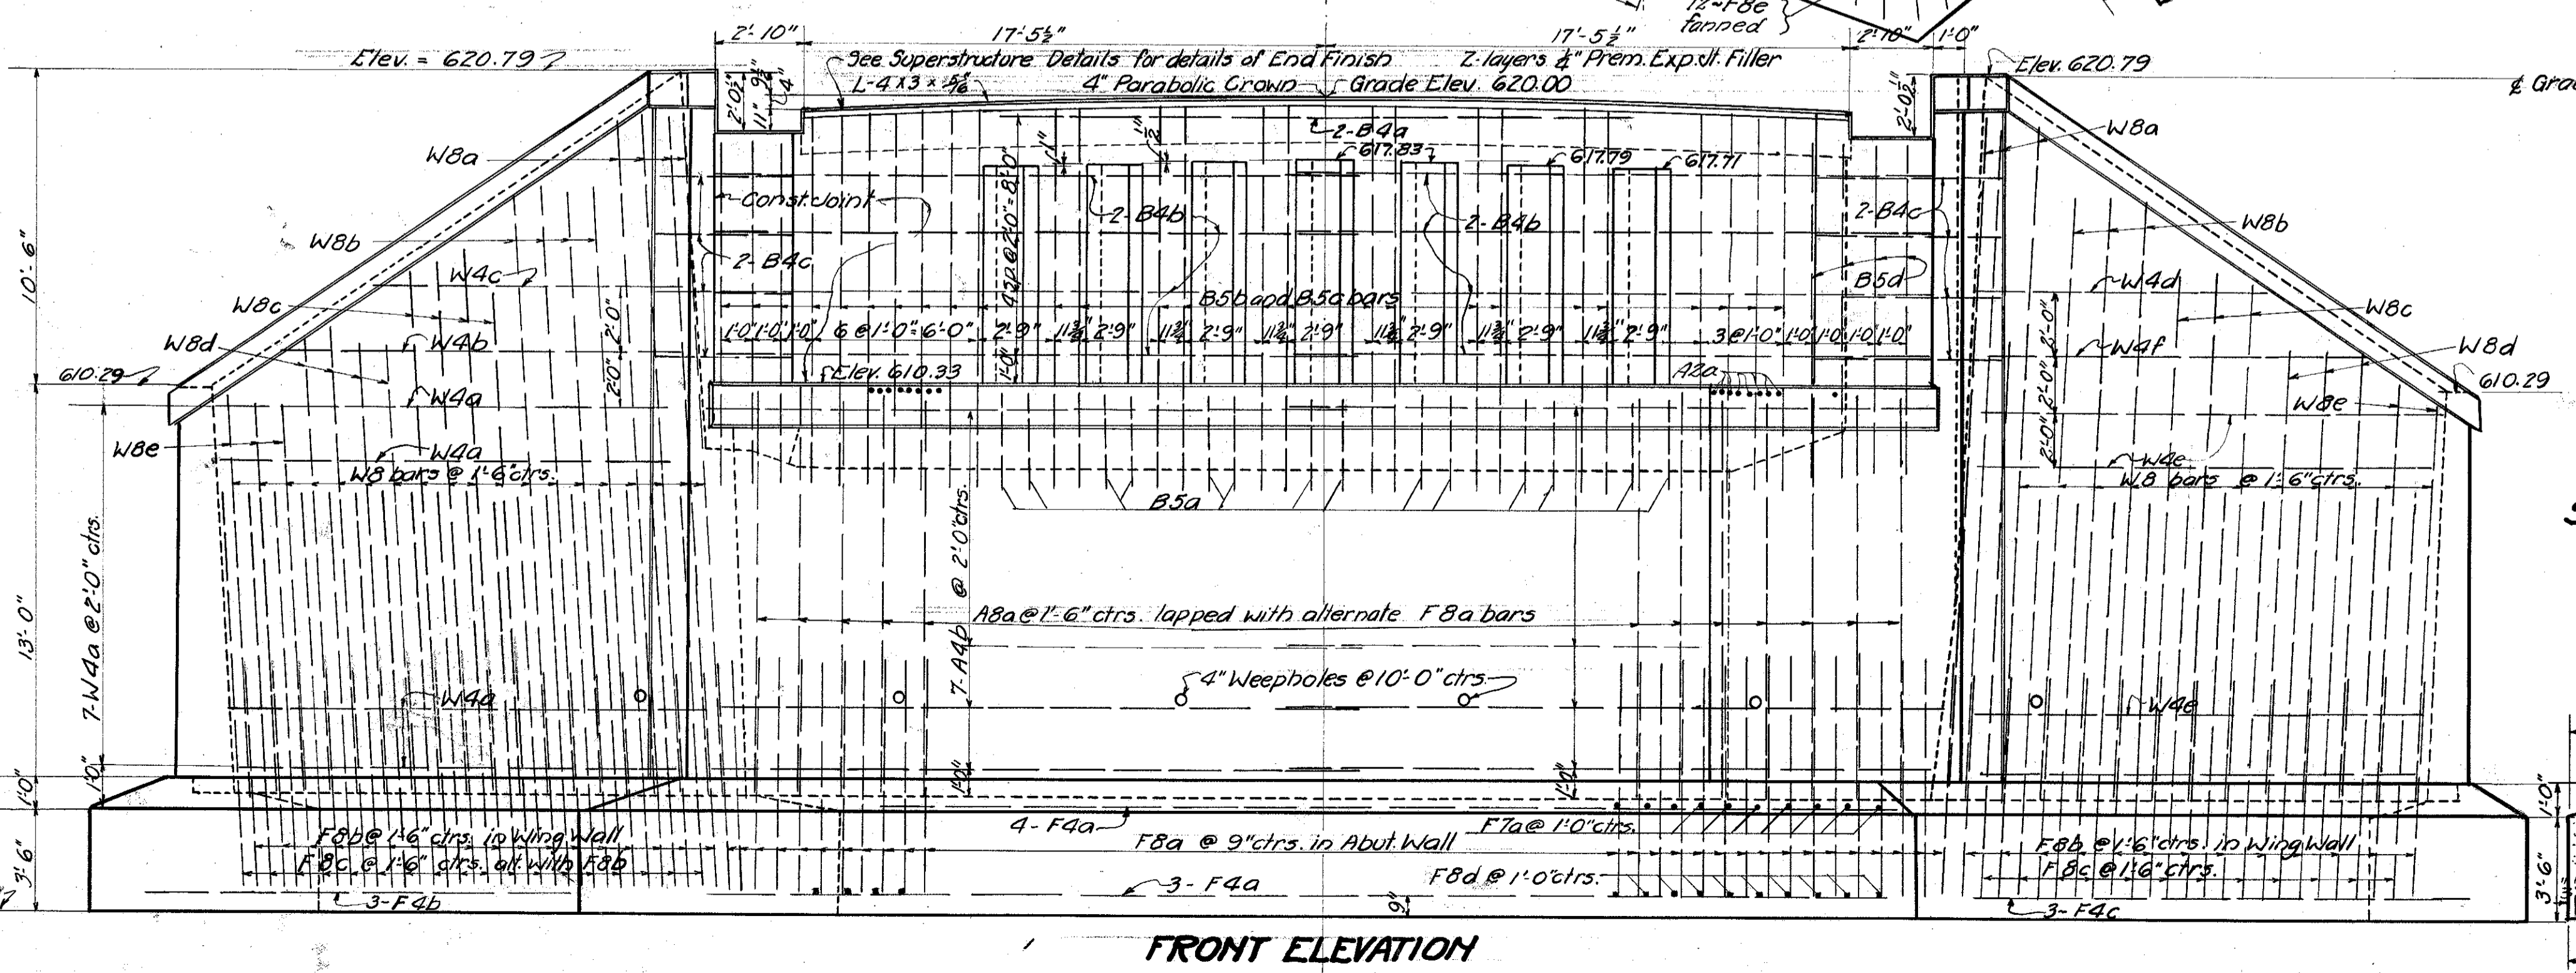 12~F8e
fanned
2'-10"
17'-5½"
17'-5½"
2'-10"
1'-0"
Elev. = 620.79
See Superstructure Details for details of End Finish
2-layers ¼" Prem. Exp. Jt. Filler
Elev. 620.79
L-4 x 3 x 5/16
4" Parabolic Crown
Grade Elev. 620.00
℄ Gra
2'-0½"
11"
9½"
4"
2'-0½"
2-B4a
W8a
1"
½"
617.83
617.79
617.71
W8a
Const. Joint
2-B4b
2-B4b
2-B4c
W8b
W8b
10'-6"
2-B4c
4 sp. @ 2'-0" = 8'-0"
W4c
B5b and B5c bars
B5d
W4d
W8c
W8c
2'-0"
2'-0"
1'-0" 1'-0" 1'-0"
6 @ 1'-0" = 6'-0"
2'-9"
11¾"
2'-9"
11¾"
2'-9"
11¾"
2'-9"
11¾"
2'-9"
11¾"
2'-9"
11¾"
2'-9"
3 @ 1'-0"
1'-0" 1'-0" 1'-0" 1'-0"
W8d
W4b
W4f
W8d
1'-0"
610.29
Elev. 610.33
A2a
610.29
W4a
2'-0"
2'-0"
2'-0"
W8e
W8e
W4a
W4e
W8 bars @ 1'-6" ctrs.
W8 bars @ 1'-6" ctrs.
B5a
13'-0"
7-W4a @ 2'-0" ctrs.
7-A4b @ 2'-0" ctrs.
A8a @ 1'-6" ctrs. lapped with alternate F8a bars
4" Weepholes @ 10'-0" ctrs.
W4a
W4e
1'-0"
1'-0"
1'-0"
1'-0"
1'-0"
4-F4a
F7a @ 1'-0" ctrs.
F8b @ 1'-6" ctrs. in Wing Wall
F8a @ 9" ctrs. in Abut. Wall
F8b @ 1'-6" ctrs. in Wing Wall
F8c @ 1'-6" ctrs. alt. with F8b
F8c @ 1'-6" ctrs.
3'-6"
3-F4a
F8d @ 1'-0" ctrs.
3'-6"
3-F4b
9"
3-F4c
FRONT ELEVATION